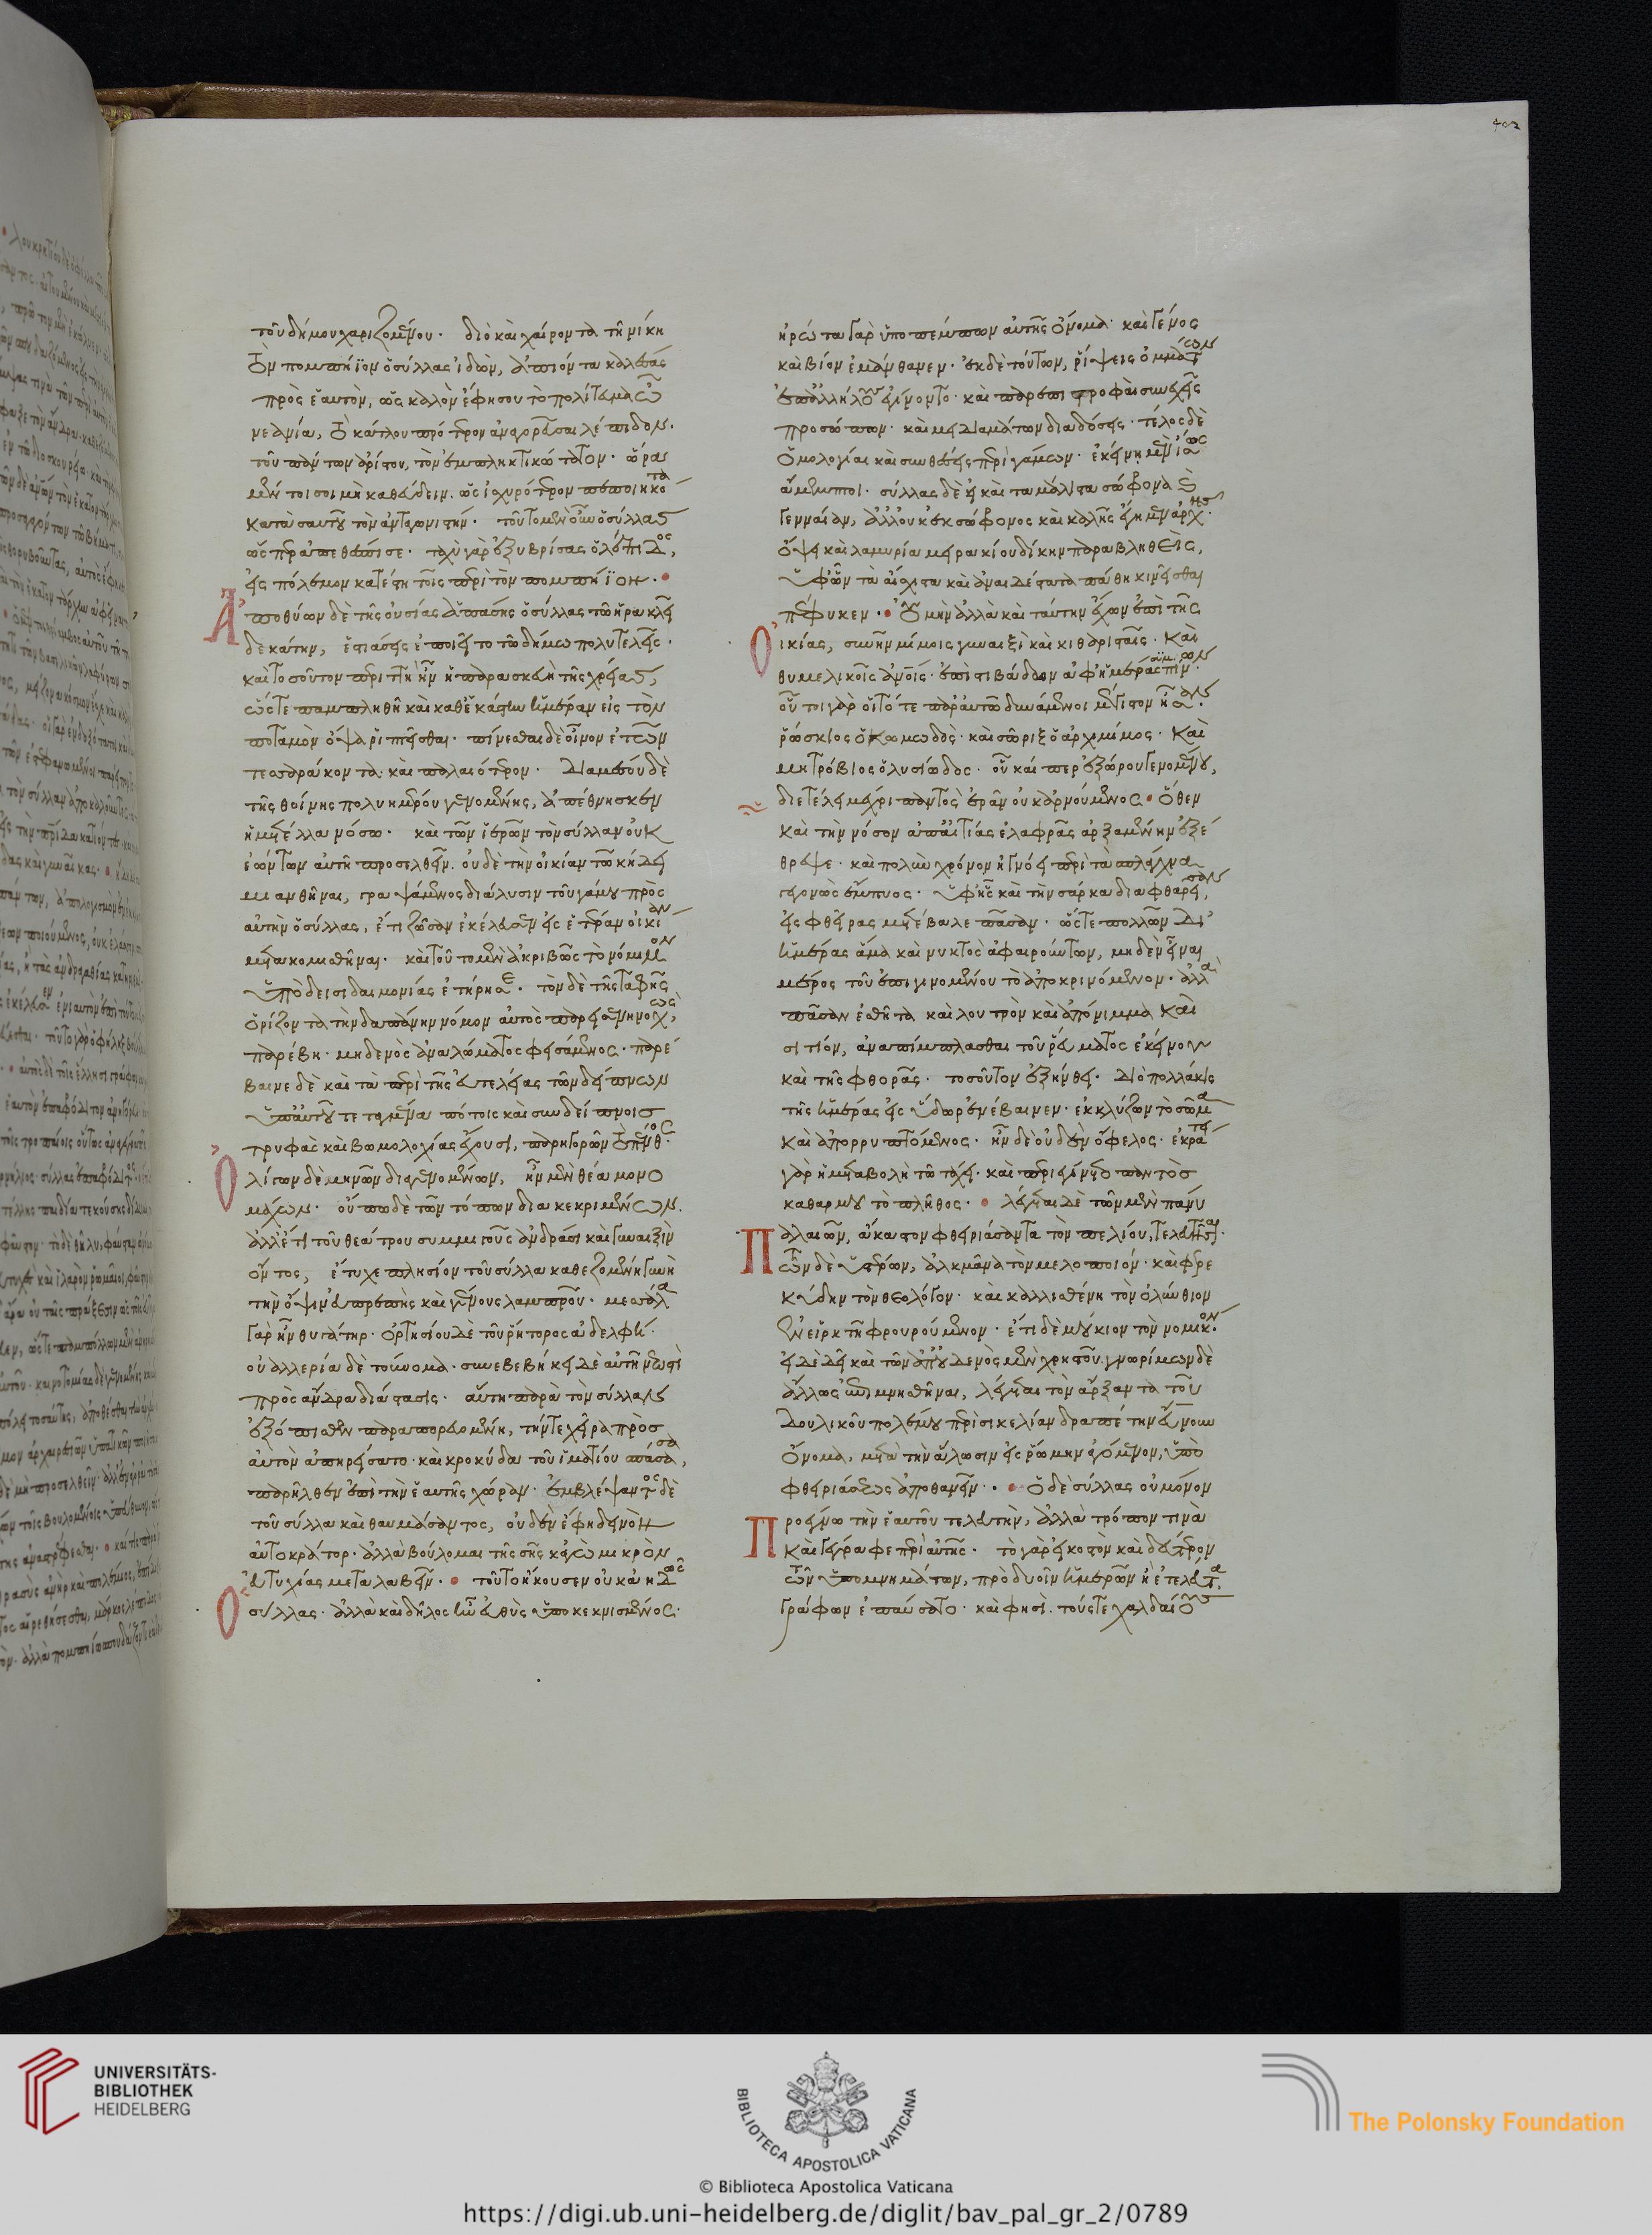 τοῦ δήμου χαριζομένου. διὸ καὶ χαίροντα τῆ νίκη
τὸν πομπήϊον ὁ σύλλας ἰδὼν, ἀπιόντα καλέσας
πρὸς ἑαυτὸν, ὡς καλὸν ἔφη σου τὸ πολίτευμα ὦ
νεανία, τὸ κάτλου πρότερον ἀναγορεῦσαι λέπιδον.
τοῦ πάντων ἀρίστου, τὸν ἐμπληκτικώτατον. ὥρα
μέντοι σοι μὴ καθεύδειν. ὡς ἰσχυρότερον πεποιηκότα
κατὰ σαυτοῦ τὸν ἀνταγωνιστήν. τοῦτο μὲν οὖν ὁ σύλλας
ὥσπερ ἀπεθέσπισε. ταχὺ γὰρ ἐξυβρίσας ὁ λέπιδος,
εἰς πόλεμον κατέστη τοῖς περὶ τὸν πομπήϊον.
Ἀποθύων δὲ τῆς οὐσίας ἁπάσης ὁ σύλλας τῶ ἡρακλεῖ
δεκάτην, ἑστιάσεις ἐποιεῖτο τῶ δήμω πολυτελεῖς.
καὶ τοσοῦτον περιττὴ ἦν ἡ παρασκευὴ τῆς χρείας,
ὥστε παμπληθῆ καὶ καθ' ἑκάστην ἡμέραν εἰς τὸν
ποταμὸν ὄψα ῥιπτεῖσθαι. πίνεσθαι δὲ οἶνον ἐτῶν
τεσσαράκοντα καὶ παλαιότερον. διαμέσου δὲ
τῆς θοίνης πολυημέρου γενομένης, ἀπέθνησκεν
ἡ μετέλλα νόσω. καὶ τῶν ἱερέων τὸν σύλλαν οὐκ
ἐώντων αὐτῆ προσελθεῖν. οὐδὲ τὴν οἰκίαν τῶ κήδει
μιανθῆναι, γραψάμενος διάλυσιν τοῦ γάμου πρὸς
αὐτὴν ὁ σύλλας, ἔτι ζῶσαν ἐκέλευσεν εἰς ἑτέραν οἰκίαν
μετακομισθῆναι. καὶ τοῦτο μὲν ἀκριβῶς τὸ νόμιμον
ὑπὸ δεισιδαιμονίας ἐτήρησε. τὸν δὲ τῆς ταφῆς
ὁρίζοντα τὴν δαπάνην νόμον αὐτὸς προεισενηνοχὼς,
παρέβη. μηδενὸς ἀναλώματος φεισάμενος. παρέ
βαινε δὲ καὶ τὰ περὶ τῆς εὐτελείας τῶν δείπνων
ὑπ' αὐτοῦ τεταγμένα πότοις καὶ συνδείπνοις
τρυφὰς καὶ βωμολοχίας ἔχουσι, παρηγορῶν τὸ πένθος.
Ὀλίγων δὲ μηνῶν διαγενομένων, ἦν μὲν θέα μονο
μάχων. οὔπω δὲ τῶν τόπων διακεκριμένων.
ἀλλ' ἔτι τοῦ θεάτρου συμμιγοῦς ἀνδράσι καὶ γυναιξὶν
ὄντος, ἔτυχε πλησίον τοῦ σύλλα καθεζομένη γυνὴ
τὴν ὄψιν εὐπρεπὴς καὶ γένους λαμπροῦ. μεσάλα
γὰρ ἦν θυγάτηρ. ὁρτησίου δὲ τοῦ ῥήτορος ἀδελφή.
οὐαλλερία δὲ τοὔνομα. συνεβεβήκει δὲ αὐτῆ νεωστὶ
πρὸς ἄνδρα διάστασις. αὕτη παρὰ τὸν σύλλαν
ἐξόπισθεν παραπορευομένη, τήν τε χεῖρα πρὸς
αὐτὸν ἀπηρείσατο. καὶ κροκύδα τοῦ ἱματίου σπάσασα,
παρῆλθεν ἐπὶ τὴν ἑαυτῆς χώραν. ἐμβλέψαντος δὲ
τοῦ σύλλα καὶ θαυμάσαντος, οὐδὲν ἔφη δεινὸν
αὐτοκράτορ. ἀλλὰ βούλομαι τῆς σῆς κἀγὼ μικρὸν
εὐτυχίας μεταλαβεῖν. τοῦτο ἤκουσεν οὐκ ἀηδῶς
Ὁ σύλλας. ἀλλὰ καὶ δῆλος ἦν εὐθὺς ὑποκεκνισμένος.
402
ἠρώτα γὰρ ὑποπέμπων αὐτῆς ὄνομα καὶ γένος
καὶ βίον ἐμάνθανεν. ἐκ δὲ τούτων, ῥίψεις ὀμμάτων
ἐπ' ἀλλήλους ἐγίνοντο. καὶ παρεπιστροφαὶ συνεχεῖς
προσώπων. καὶ μειδιαμάτων διαδόσεις. τέλος δὲ
ὁμολογίαι καὶ συνθέσεις περὶ γάμων. ἐκείνη μὲν ἴσως
ἄμεμπτοι. σύλλας δὲ εἰ καὶ τὰ μάλιστα σώφρονα καὶ
γενναίαν, ἀλλ' οὐκ ἐκ σώφρονος καὶ καλῆς ἔγημεν ἀρχῆς.
ὄψει καὶ λαμυρία μειρακίου δίκην παραβληθεὶς,
ὑφ' ὧν τὰ αἴσχιστα καὶ ἀναιδέστατα πάθη κινεῖσθαι
πέφυκεν. Οὐ μὴν ἀλλὰ καὶ ταύτην ἔχων ἐπὶ τῆς
Οἰκίας, συνῆν μίμοις γυναιξὶ καὶ κιθαρισταῖς. καὶ
θυμελικοῖς ἀνθρώποις. ἐπὶ στιβάδων ἀφ' ἡμέρας συμπίνων.
οὗτοι γὰρ οἵ τότε παρ' αὐτῶ δυνάμενοι μέγιστον ἦσαν.
ῥώσκιος ὁ κωμωδὸς. καὶ σώριξ ὁ ἀρχιμίμος. καὶ
μητρόβιος ὁ λυσιωδὸς. οὗ καίπερ ἐξώρου γενομένου,
διετέλει μέχρι παντὸς ἐρᾶν οὐκ ἀρνούμενος. ὅθεν
καὶ τὴν νόσον ἀπ' αἰτίας ἐλαφρᾶς ἀρξαμένην ἐξέ
θρεψε. καὶ πολὺν χρόνον ἠγνόει περὶ τὰ σπλάγχνα
γεγονὼς ἔμπυος. ὑφ' ἧς καὶ τὴν σάρκα διαφθαρεῖσαν,
εἰς φθεῖρας μετέβαλε πᾶσαν. ὥστε πολλῶν δι'
ἡμέρας ἅμα καὶ νυκτὸς ἀφαιρούντων, μηδὲν εἶναι
μέρος τοῦ ἐπιγινομένου τὸ ἀποκρινόμενον. ἀλλὰ
πᾶσαν ἐσθῆτα καὶ λουτρὸν καὶ ἀπόνιμμα καὶ
σιτίον, ἀναπίμπλασθαι τοῦ ῥεύματος ἐκείνου
καὶ τῆς φθορᾶς. τοσοῦτον ἐξήνθει. διὸ πολλάκις
τῆς ἡμέρας εἰς ὕδωρ ἐνέβαινεν. ἐκκλύζων τὸ σῶμα
καὶ ἀπορρυπτόμενος. ἦν δὲ οὐδὲν ὄφελος. ἐκράτει
γὰρ ἡ μεταβολὴ τῶ τάχει. καὶ περιεγίνετο παντὸς
καθαρμοῦ τὸ πλῆθος. λέγεται δὲ τῶν μὲν πάνυ
Παλαιῶν, ἄκαστον φθειριάσαντα τὸν πελίου, τελευτῆσαι.
τῶν δὲ ὑστέρων, ἀλκμᾶνα τὸν μελοποιόν. καὶ φερε
κύδην τὸν θεολόγον. καὶ καλλισθένη τὸν ὀλύνθιον
ἐν εἱρκτῆ φρουρούμενον. ἔτι δὲ μούκιον τὸν νομικόν.
εἰ δὲ δεῖ καὶ τῶν ἀπ' οὐδενὸς μὲν χρηστοῦ. γνωρίμων δὲ
ἄλλως ἐπιμνησθῆναι, λέγεται τὸν ἄρξαντα τοῦ
δουλικοῦ πολέμου περὶ σικελίαν δραπέτην εὔνουν
ὄνομα, μετὰ τὴν ἅλωσιν εἰς ῥώμην ἀγόμενον, ὑπὸ
φθειριάσεως ἀποθανεῖν. ὁ δὲ σύλλας οὐ μόνον
Προέγνω τὴν ἑαυτοῦ τελευτὴν, ἀλλὰ τρόπον τινὰ
καὶ γέγραφε περὶ αὐτῆς. τὸ γὰρ εἰκοστὸν καὶ δεύτερον
τῶν ὑπομνημάτων, πρὸ δυοῖν ἡμερῶν ἢ ἐτελεύτα.
γράφων ἐπαύσατο. καὶ φησὶ. τούς τε χαλδαίους
UNIVERSITÄTS-
BIBLIOTHEK
HEIDELBERG
BIBLIOTECA APOSTOLICA VATICANA
The Polonsky Foundation
© Biblioteca Apostolica Vaticana
https://digi.ub.uni-heidelberg.de/diglit/bav_pal_gr_2/0789